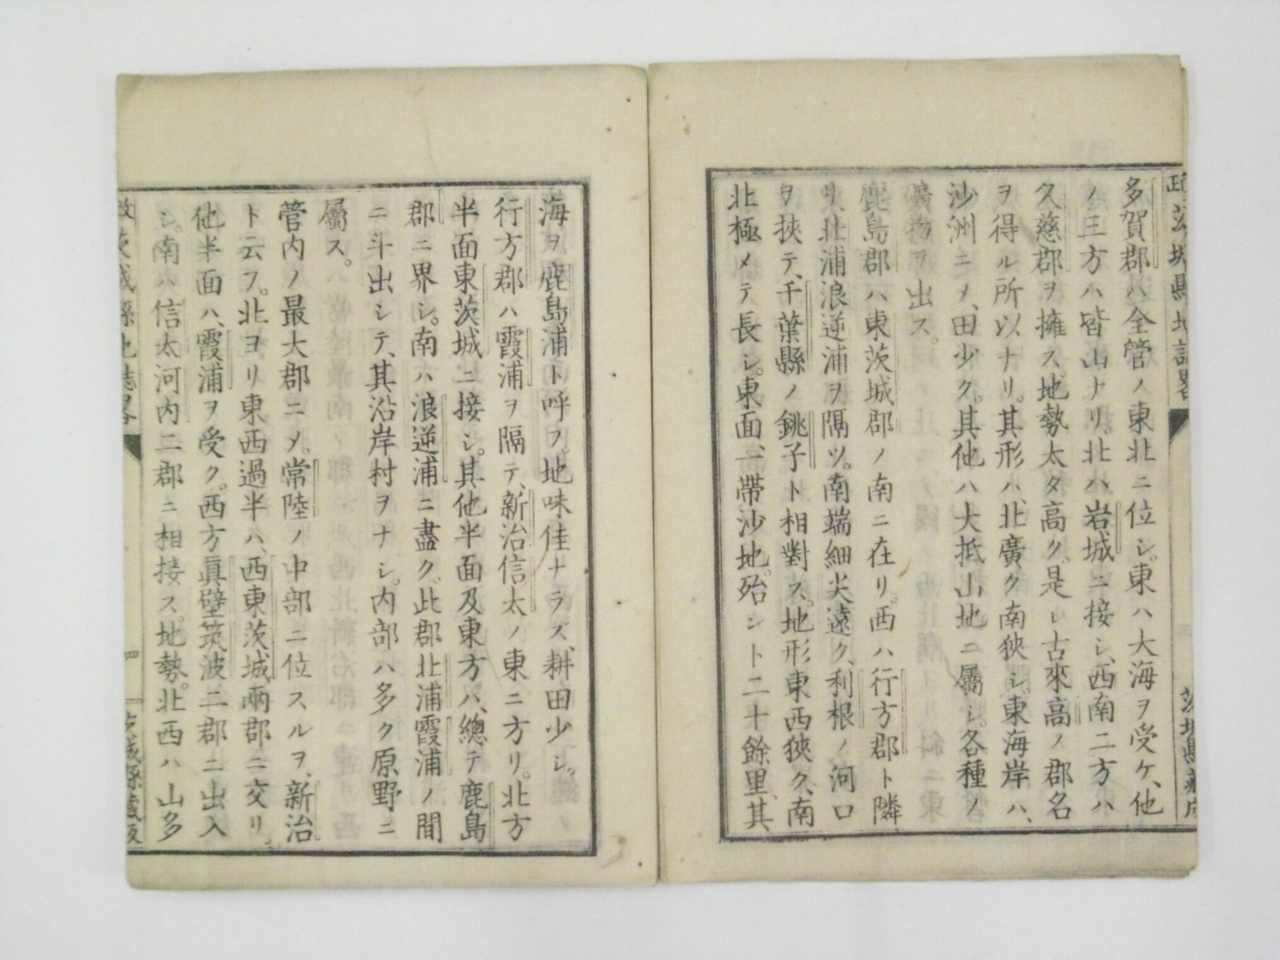 改茨城縣地誌畧
茨城縣藏版
多賀郡ハ全管ノ東北ニ位シ。東ハ大海ヲ受ケ、他
ノ三方ハ皆山ナリ。北ハ岩城ニ接シ、西南二方ハ
久慈郡ヲ擁ス。地勢太タ高ク。是レ古來高ノ郡名
ヲ得ル所以ナリ。其形ハ、北廣ク南狹シ。東海岸ハ、
沙洲ニ〆、田少ク。其他ハ大抵山地ニ屬シ。各種ノ
礦物ヲ出ス。
鹿島郡ハ東茨城郡ノ南ニ在リ。西ハ行方郡ト隣
リ、北浦浪逆浦ヲ隔ツ。南端細尖遠ク、利根ノ河口
ヲ挾テ、千葉縣ノ銚子ト相對ス。地形東西狹ク、南
北極メテ長シ。東面、一帶沙地。殆ント二十餘里、其
海ヲ鹿島浦ト呼フ。地味佳ナラズ、耕田少シ。
行方郡ハ霞浦ヲ隔テ、新治信太ノ東ニ方リ。北方
半面東茨城ニ接シ。其他半面及東方ハ、總テ鹿島
郡ニ界シ。南ハ浪逆浦ニ盡ク。此郡北浦霞浦ノ間
ニ斗出シテ、其沿岸村ヲナシ。内部ハ多ク原野ニ
屬ス。
管内ノ最大郡ニ〆。常陸ノ中部ニ位スルヲ、新治
ト云フ。北ヨリ東西過半ハ、西東茨城兩郡ニ交リ。
他半面ハ、霞浦ヲ受ク。西方眞壁筑波二郡ニ出入
シ。南ハ信太河内二郡ニ相接ス。地勢。北西ハ山多
改茨城縣地誌畧
四
茨城縣藏版